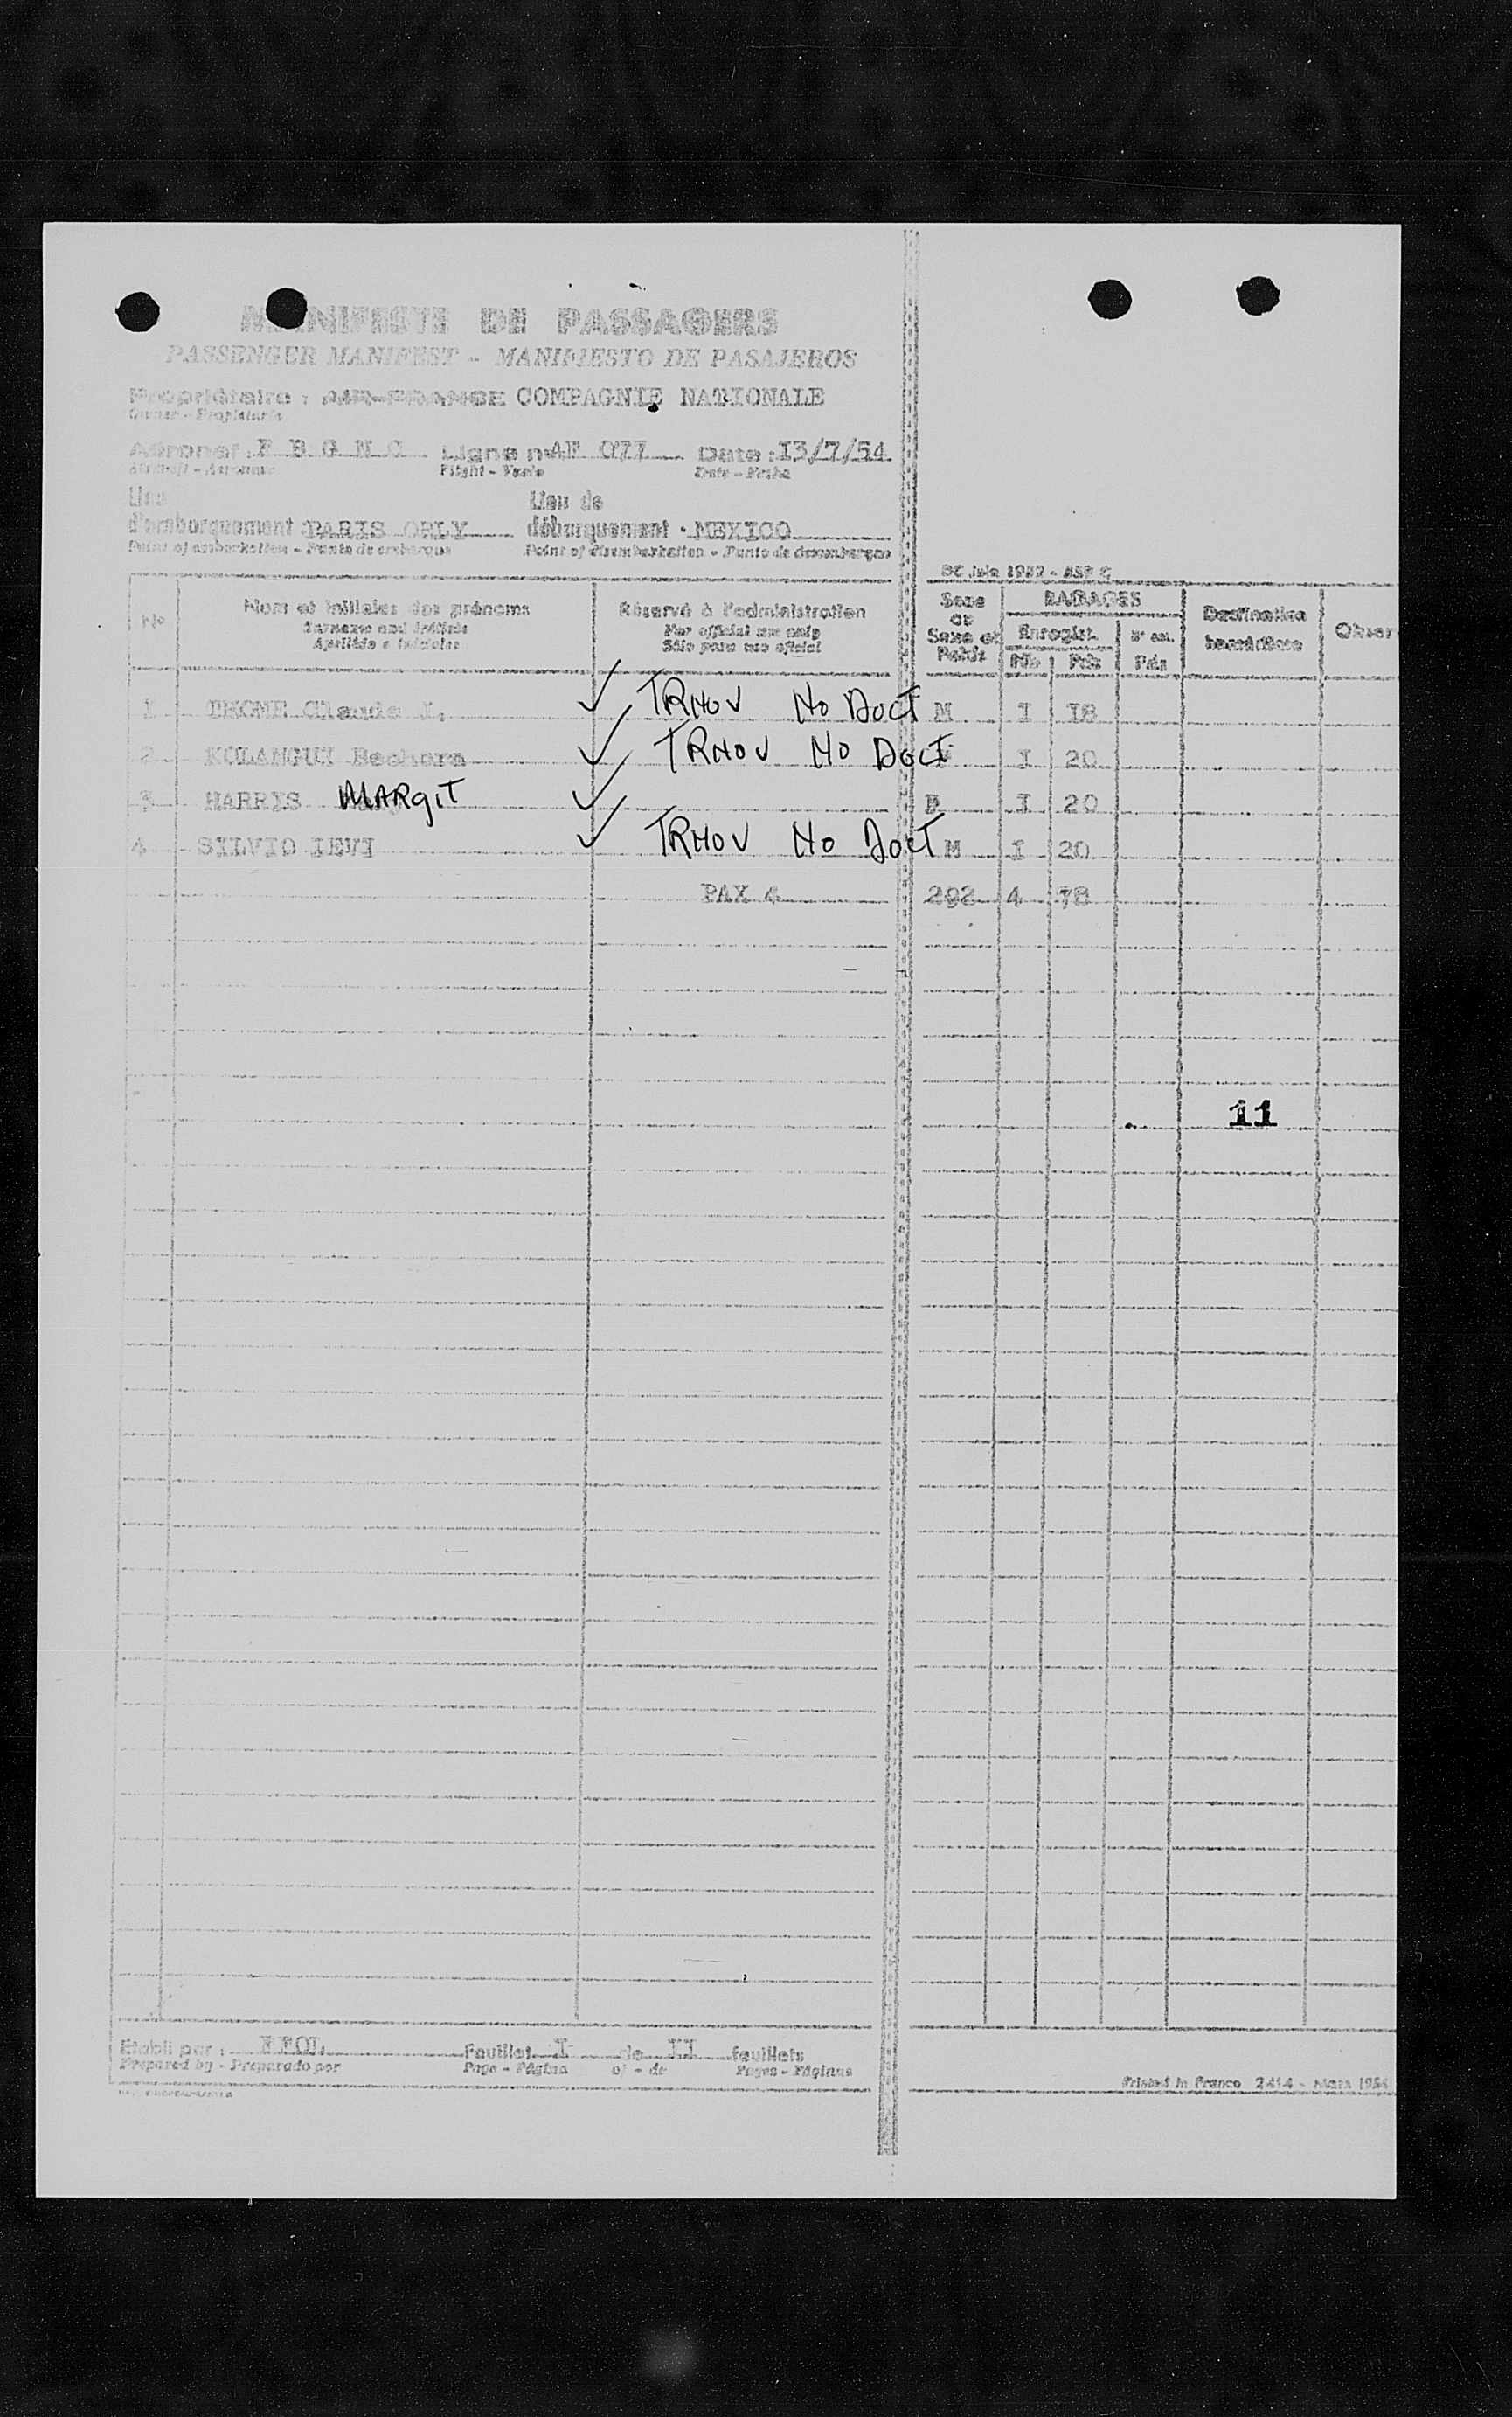 MANIFESTE DE PASSAGERS
PASSENGER MANIFEST - MANIFIESTO DE PASAJEROS
Propriétaire : AIR-FRANCE COMPAGNIE NATIONALE
Owner - Propietario
Aéronef : F B G N C Ligne n° AF 077 Date : I3/7/54
Aircraft - Aeronave Flight - Vuelo Date - Fecha
Lieu d'embarquement PARIS ORLY Lieu de débarquement MEXICO
Point of embarkation - Punto de embarque Point of disembarkation - Punto de desembarque
No Nom et initiales des prénoms Réservé à l'administration Sexe ou Sexe et Poids BAGAGES Destination Obser
Surname and initials For official use only Enregist. N° en.
Apellido e iniciales Sólo para uso oficial Nb Pds Pds
1 THOME Claude J. ✓ TRNOV NO DOCT M I I8
2 Bechara ✓ TRNOV NO DOCT I 20
3 HARRIS MARGIT ✓ F I 20
4 SILVIO LEVI ✓ TRNOV NO DOCT M I 20
PAX 4 292 4 78
11
Etabli par : Feuillet I de II feuillets
Prepared by - Preparado por Page - Página of - de Pages - Páginas
Printed in France 2414 - Mars 1954